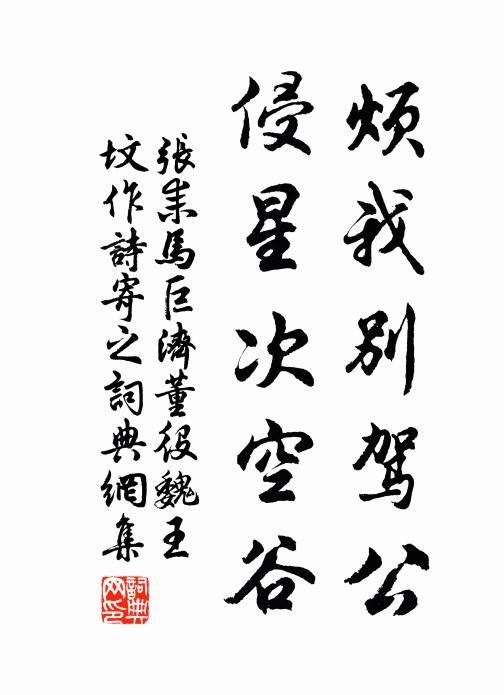 煩我別駕公
侵星次空谷
張耒馬巨濟董役魏王
墳作詩寄之詞典網集
詞典
网印